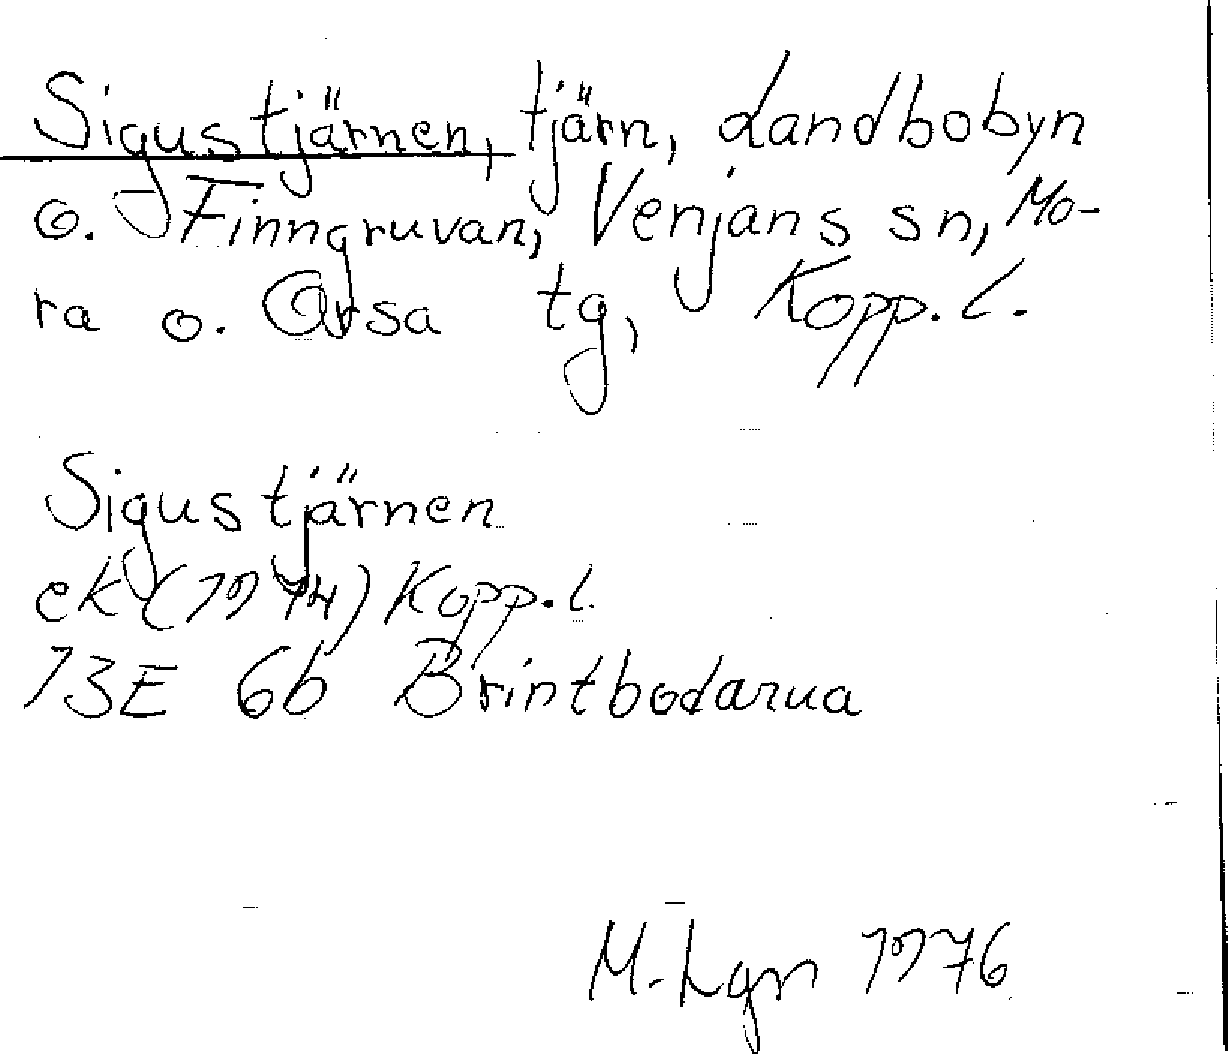 Sigustjärnen, tjärn, Landbobyn
o. Finngruvan, Venjans sn, Mo-
ra o. Orsa tg, Kopp. l.
Sigustjärnen
ek (1974) Kopp. l.
13E 6b Brintbodarna
M. Lgn 1976